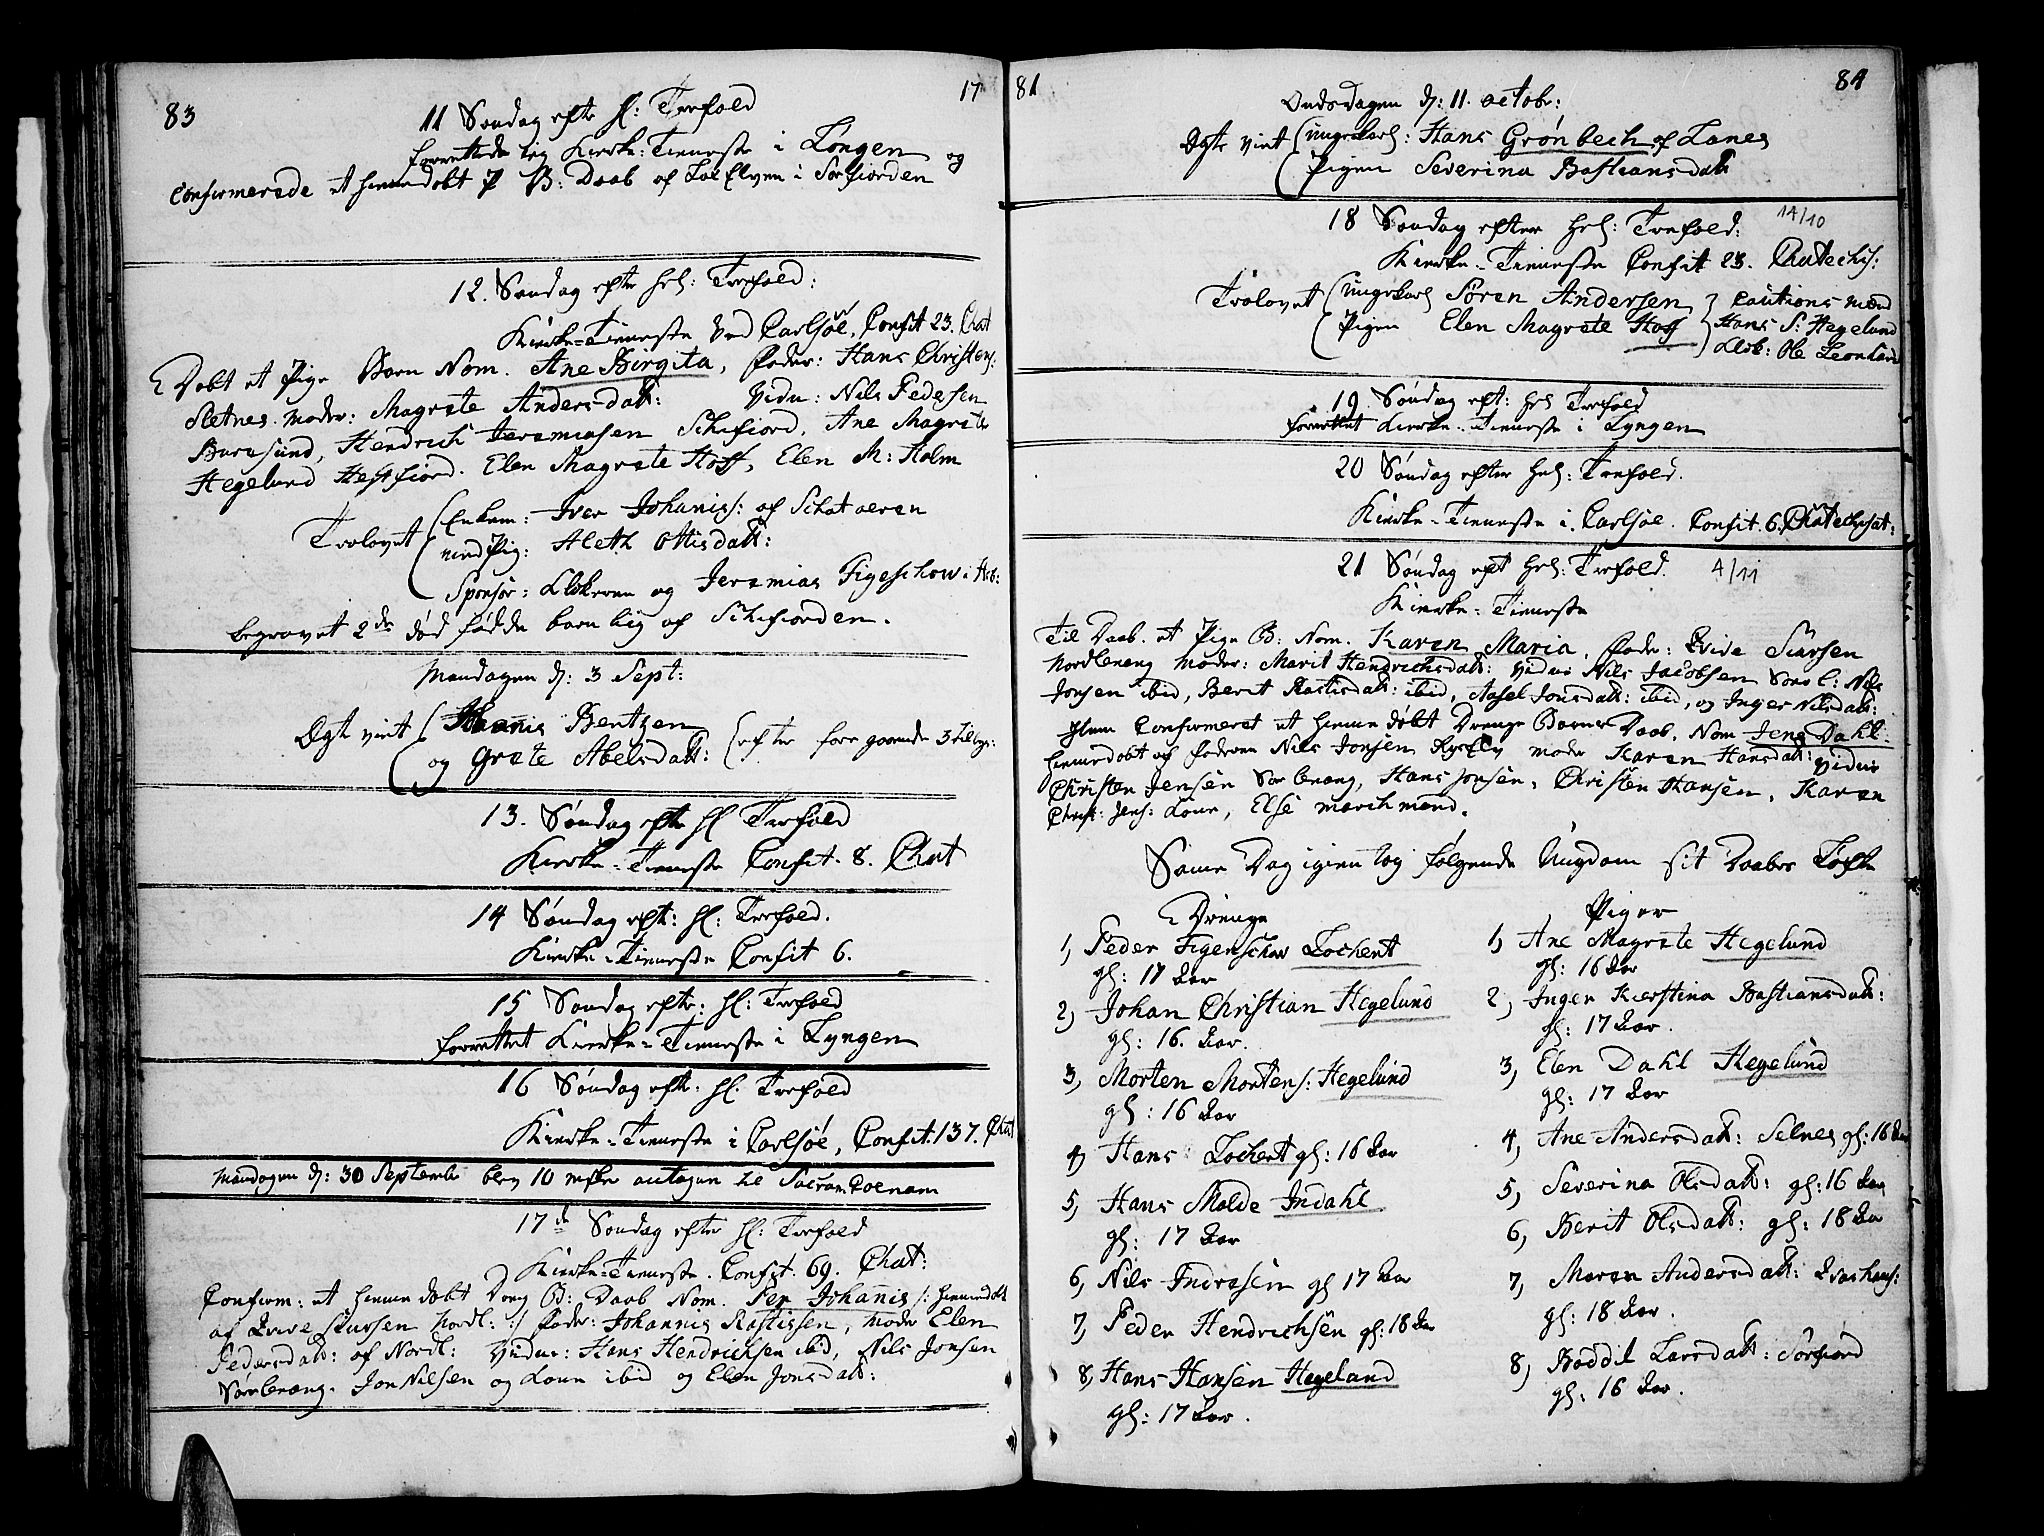 83
17
11 Søndag efter hl: Trefold
forrettede jeg Kirke-Tieneste i Løngen og
Confirmerede et hiemedøbt P B: Daab af i Sørfiorden
12. Søndag efter hel: Trefold:
Kirke-Tieneste ved Carlsøe, Confit 23. Chat
Døbt et Pige Barn Nom. Ane Birgita, Fader: Hans Christens:
Sletnes. Moder: Magrete Andersdatt: Vidn: Nils Pedersen
Buresund, Hendrich Jeremiasen Schifiord, Ane Magrete
Hegelund Hessfiord. Elen Magrete Hoff, Elen M: Holm
Trolovet Enkem: Iver Johanis: af Schatoeren
med Pig: Aleth Ottisdatt:
Sponsor: Klokeren og Jeremias Figeschow i
begravet 2de død fødde barn liig af Schifiorden.
Mandagen d: 3 Sept:
Ægt viet Johanis Bentzen
og Grete Abelsdatt: efter foregaaende 3
13. Søndag efter hl Trefold
Kirke-Tieneste Confit. 8. Chat
14 Søndag eft: hl: Trefold.
Kirke-Tieneste Confit 6.
15 Søndag eftr: hl: Trefold
forrettet Kirke-Tieneste i Lyngen
16 Søndag eftr. hl. Trefold
Kirke-Tieneste i Carlsøe, Confit. 137. Chat
Mandagen d: 30 Septembr blev 10 antagen til Sacram: Coenam
17de Søndag efter hl: Trefold
Kirke-Tieneste. Confit. 69. Chat:
Confirm: et hieme døbt Dreng B: Daab Nom. Per Johanis /: hiemedøbt
af Sjursen Nordl: :/ Fader: Johannis Rastissen, Moder Elen
Pedersdatt: af Nordl: Vidner: Hans Hendrichsen ibid, Nils Jonsen
Sørlenang. Jon Nilsen og Kone ibid og Elen Jonsdatt:
81
84
Ondsdagen d: 11. octobr:
Ægte viet Ungekarl: Hans Grønbech af Lanes
Pigen Severina Bastiansdatt
18 Søndag efter hel: Trefold. 14/10
Kirke-Tieneste Confit 23. Chatechis:
Trolovet Ungekarl Søren Andersen Cautions mænd
Pigen Elen Magrete Hoff Hans S: Hegelund
Klok: Ole Leonhard
19 Søndag eft: hel Trefold
forrettet Kirke-Tieneste i Lyngen
20 Søndag efter hel: Trefold.
Kirke-Tieneste i Carlsøe. Confit. 6. Chatechisat:
21 Søndag eft hel: Trefold. 4/11
Kirke-Tieneste
Til Daab. et Pige B: Nom. Karen Maria, Fader: Siursen
Nordlenang Moder: Marit Hendrichsdatt: Vidner Nils Jacobsen Sørl: Nils
Jonsen ibid, Berit Rastisdatt: ibid, Aasel Jonsdatt: ibid, og Inger Nilsdatt:
Item Confirmeret et hieme døbt Drenge Barns Daab, Nom Jens Dahl.
hiemedøbt af Faderen Nils Jonsen Moder Karen Hansdatt: Vidner
Christen Jensen Sørlenang, Hans Jonsen, Christen Hansen, Karen
Christ: Jens: Kone, Else Marchmand.
Same Dag igientog følgende Ungdom sit Daabes Løfte
Drenge
1, Peder Figenschou Lochert
gl: 17 Aar
2, Johan Christian Hegelund
gl: 16. Aar.
3, Morten Mortens: Hegelund
gl: 16 Aar
4, Hans Lochert gl: 16 Aar
5, Hans Molde Indahl
gl: 17 Aar
6, Nils Indresen gl 17 Aar
7, Peder Hendrichsen gl: 18 Aar
8, Hans Hansen Hegelund
gl: 17 Aar.
Piger
1, Ane Magrete Hegelund
gl: 16 Aar
2, Inger Kierstina Bastiansdatt:
gl: 17 Aar.
3, Elen Dahl Hegelund
gl: 17 Aar
4, Ane Andersdatt: Selnes gl: 16 Aar
5, Severina Olsdatt: gl: 16 Aar
6, Berit Olsdatt: gl: 18 Aar
7, Maren Andersdatt:
gl: 18 Aar.
8, Boddil Larsdatt: Sørfiord
gl: 16 Aar.